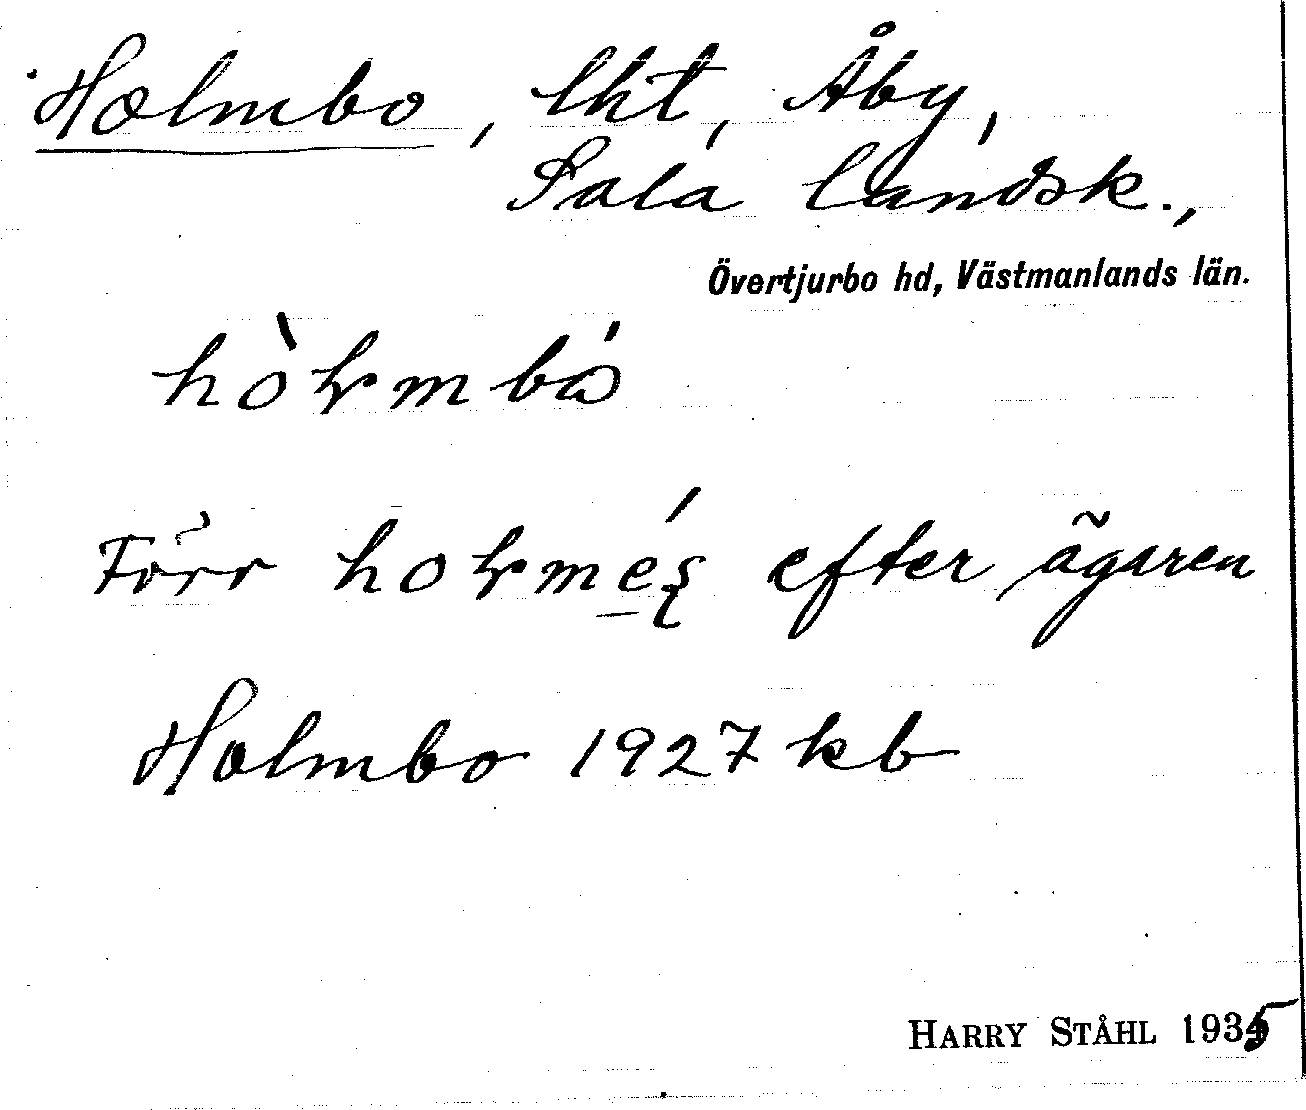 Holmbo, lht, Åby,
Sala landsk.,
Övertjurbo hd, Västmanlands län.
hòɫmbó
Förr hoɫmés efter ägaren
Holmbo 1927 kb
HARRY STÅHL 1935